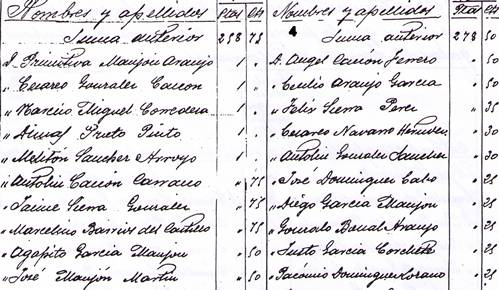 Nombres y apellidos Ptas Cts
Suma anterior 258 75
D. Primitivo Manjon Araujo 1 .
" Cesareo Gonzalez Cancon 1 .
" Narciso Miguel Corredera 1 .
" Dimas Prieto Pinto 1 .
" Meliton Sanchez Arroyo 1 .
" Antolin Cancon Carrasco " 75
" Jaime Sierra Gonzalez " 75
" Marcelino Barrios del Castillo " 75
" Agapito Garcia Manjon " 50
" José Manjón Martin " 50
Nombres y apellidos Ptas Cts
Suma anterior 278 50
D. Angel Cancón Ferrero . 50
" Cecilio Araujo Garcia . 50
" Felix Sierra Perez " 35
" Cesareo Navarro . 30
" Antolin Gonzalez Sanchez " 30
" José Dominguez Cabo . 25
" Diego Garcia Manjon . 25
" Gonzalo Araujo . 25
" Justo Garcia Corchete . 25
" Pacomio Dominguez Lozano . 25